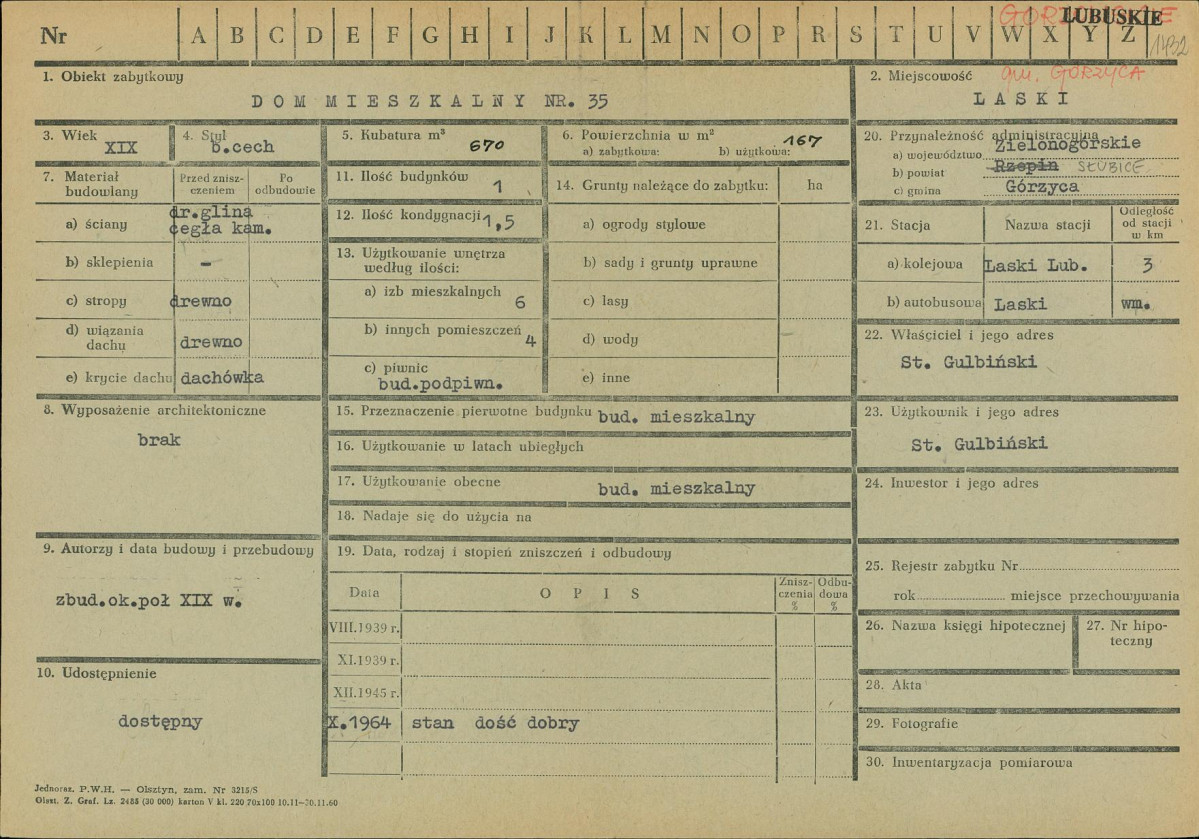 Nr A B C D E F G H I J K L M N O P R S T U V W X Y Z
LUBUSKIE
1432
1. Obiekt zabytkowy
DOM MIESZKALNY NR. 35
2. Miejscowość
gm. GÓRZYCA
LASKI
3. Wiek
XIX
4. Styl
b.cech
5. Kubatura m³
670
6. Powierzchnia w m²
167
a) zabytkowa: b) użytkowa:
20. Przynależność administracyjna
a) województwo Zielonogórskie
b) powiat Rzepin SŁUBICE
c) gmina Górzyca
7. Materiał budowlany
Przed zniszczeniem
Po odbudowie
a) ściany dr.glina cegła kam.
b) sklepienia –
c) stropy drewno
d) wiązania dachu drewno
e) krycie dachu dachówka
11. Ilość budynków 1
12. Ilość kondygnacji 1,5
13. Użytkowanie wnętrza według ilości:
a) izb mieszkalnych 6
b) innych pomieszczeń 4
c) piwnic
bud.podpiwn.
14. Grunty należące do zabytku: ha
a) ogrody stylowe
b) sady i grunty uprawne
c) lasy
d) wody
e) inne
21. Stacja
Nazwa stacji
Odległość od stacji w km
a) kolejowa Laski Lub. 3
b) autobusowa Laski wm.
22. Właściciel i jego adres
St. Gulbiński
8. Wyposażenie architektoniczne
brak
15. Przeznaczenie pierwotne budynku bud. mieszkalny
16. Użytkowanie w latach ubiegłych
17. Użytkowanie obecne bud. mieszkalny
18. Nadaje się do użycia na
23. Użytkownik i jego adres
St. Gulbiński
24. Inwestor i jego adres
9. Autorzy i data budowy i przebudowy
zbud.ok.poł XIX w.
19. Data, rodzaj i stopień zniszczeń i odbudowy
Data OPIS Zniszczenia % Odbudowa %
VIII.1939 r.
XI.1939 r.
XII.1945 r.
X.1964 stan dość dobry
25. Rejestr zabytku Nr
rok miejsce przechowywania
26. Nazwa księgi hipotecznej
27. Nr hipoteczny
28. Akta
29. Fotografie
30. Inwentaryzacja pomiarowa
10. Udostępnienie
dostępny
Jednoraz. P.W.H. — Olsztyn, zam. Nr 3215/S
Olszt. Z. Graf. Lz. 2485 (30 000) karton V kl. 220 70x100 10.11—30.11.60